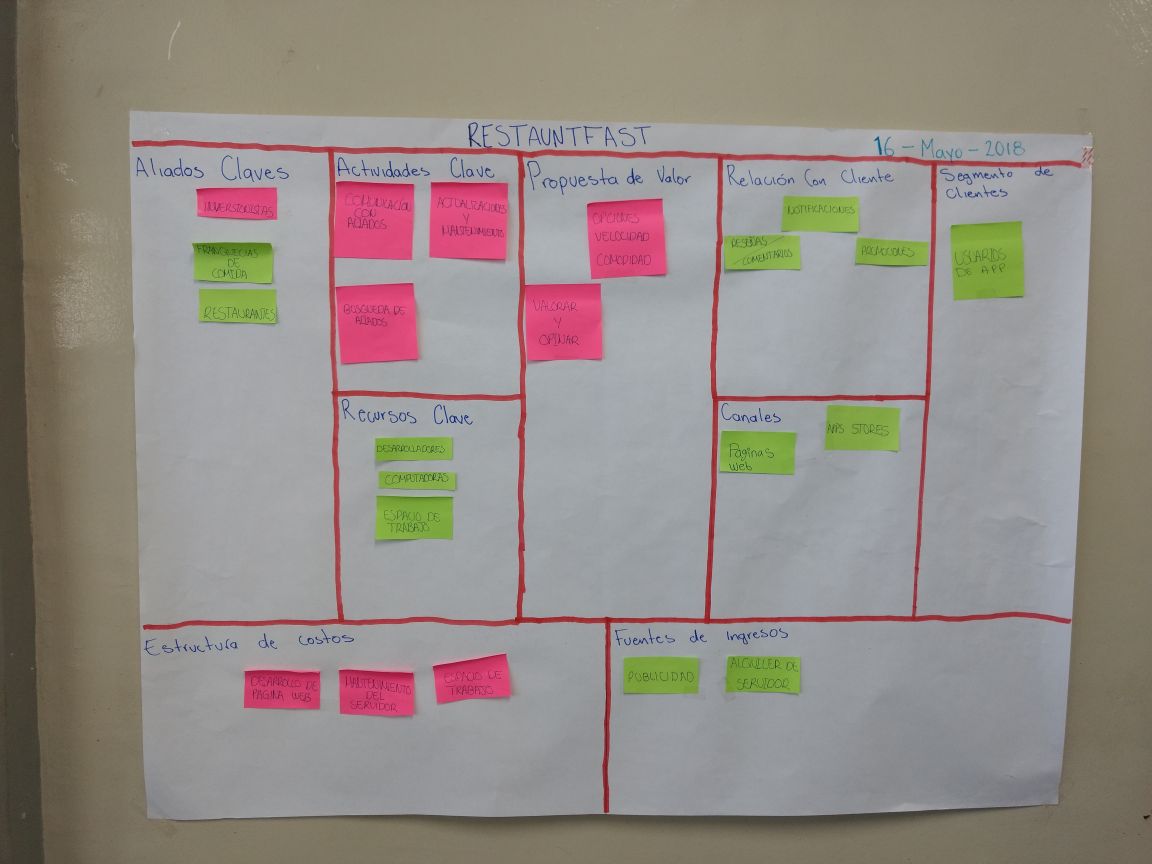 RESTAUNTFAST
16 - Mayo - 2018
Aliados Claves
INVERSIONISTAS
FRANQUICIAS
DE
COMIDA
RESTAURANTES
Actividades Clave
COMUNICACIÓN
CON
ALIADOS
ACTUALIZACIONES
Y
MANTENIMIENTO
BUSQUEDA DE
ALIADOS
Recursos Clave
DESARROLLADORES
COMPUTADORAS
ESPACIO DE
TRABAJO
Propuesta de Valor
OPCIONES
VELOCIDAD
COMODIDAD
VALORAR
Y
OPINAR
Relación Con Cliente
NOTIFICACIONES
RESEÑAS
COMENTARIOS
PROMOCIONES
Canales
APPS STORES
Paginas
web
Segmento de
Clientes
USUARIOS
DE APP
Estructura de costos
DESARROLLO DE
PAGINA WEB
MANTENIMIENTO
DEL
SERVIDOR
ESPACIO DE
TRABAJO
Fuentes de Ingresos
PUBLICIDAD
ALQUILER DE
SERVIDOR